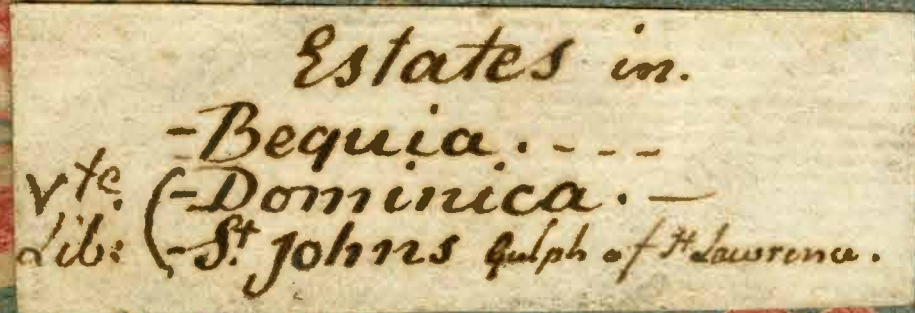 Estates in.
-Bequia. - - -
Vte. (-Dominica. —
Lib: (-St. Johns Gulph of St Lawrence.